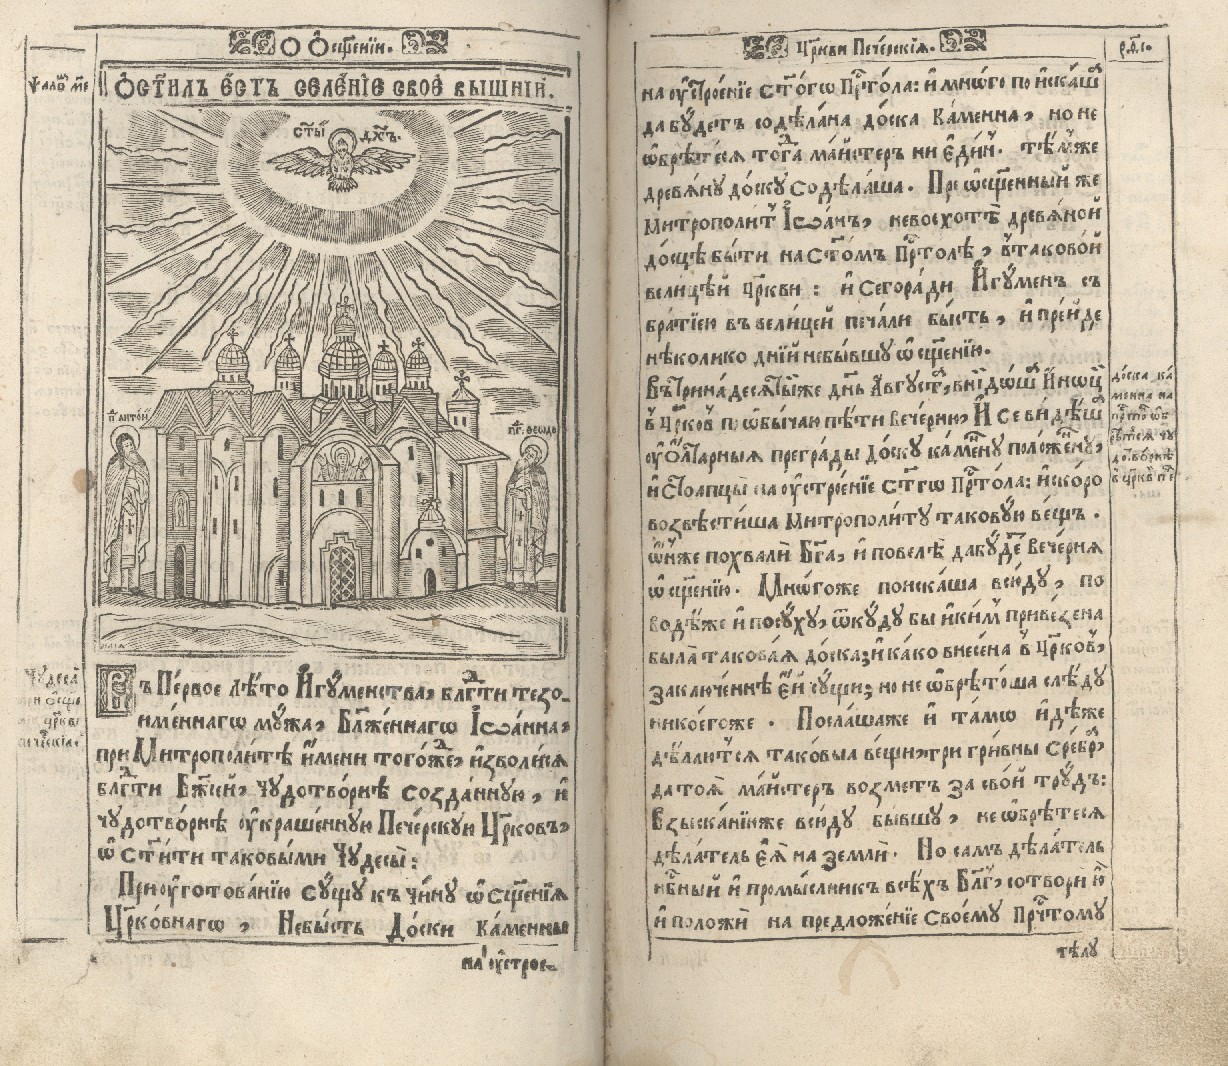 Ѻ Ѻсщ҃енїи.
Ѱалѡ҇ м҃е
Ѻст҃илъ є҆́стъ селе́нїе своѐ вы́шнїй.
ст҃ы́й
дх҃ъ.
п҃ анто́н
пр҇ ѳеѡдо
Чꙋдеса̀
црк҃ви
пече́рскїѧ
Въ Пе́рвое лѣ́то И҆гꙋ́менства, блг҃дти тезо-
имѣ́ннагѡ мꙋ́жа, Бл҃же́ннагѡ І҆ѡа́нна,
при Митрополи́тѣ и҆́мени того́же, и҆зво́лисѧ
блг҃дти Бж҃їей, чꙋдотво́рнѣ созда́ннꙋю, и҆
чꙋдотво́рнѣ ᲂу҆краше́ннꙋю Пече́рскꙋю Цр҃ковь,
ѡ҆ст҃и́ти таковы́ми Чꙋдесы̀:
При ᲂу҆гото́ванїю сꙋ́щꙋ къ чи́нꙋ ѡ҆сщ҃е́нїѧ
Цр҃ко́внагѡ, Небы́сть До́ски ка́менны
на ᲂу҆строе-
Цр҃кви Пече́рскїѧ.
на ᲂу҆строе́нїе ст҃о́гѡ Прⷭ҇то́ла: и҆ мно́гѡ по и҆ска́шѧ
да бꙋ́детъ содѣ́лана до́ска ка́менна, но не
ѡ҆брѣ́тесѧ тогда̀ ма́йстеръ ни є҆ди́нъ. тѣ́мже
древѧ́нꙋ до́скꙋ содѣ́лаша. Прео҆сщ҃е́нный же
Митрополи́тъ І҆ѡа́нъ, невосхотѣ̀ древѧ́ной
до́сцѣ бы́ти на ст҃о́мъ Прⷭ҇то́лѣ, в̾ таково́й
вели́цѣй цр҃кви: и҆ сегора́ди И҆гꙋ́менъ съ
бра́тїею въ вели́цей печа́ли бы́сть, и҆ пре́йде
нѣ́колико дні́й небы́вшꙋ ѡ҆сщ҃е́нїю.
Въ Трина́десѧтый же днь А҆́вгꙋста, вни́доша И҆́ноцы
в̾ Цр҃ковь по ѡ҆бы́чаю пѣ́ти вече́рню, И҆ се ви́дѣша
ᲂу҆ О҆лта́рныѧ прегра́ды до́скꙋ ка́меннꙋ поло́женꙋ,
и҆ Столпцы̀ на ᲂу҆строе́нїе ст҃гѡ Прⷭ҇то́ла: и҆ ско́ро
возвѣсти́ша Митрополи́тꙋ такову́ю ве́щъ.
ѡ҆́нже похвалѝ Бг҃а, и҆ повелѣ̀ да бꙋ́де Вече́рнѧ
ѡ҆сщ҃е́нїю. Мно́гѡже поиска́ша всю́дꙋ, по
водѣ́же и҆ посꙋ́хꙋ, ѿкꙋ́дꙋ бы и҆ ки́мъ привезена̀
была̀ такова́ѧ до́ска; и҆ ка́ко внесе́на в̾ Цр҃ковь,
заключе́ннѣ є҆́й сꙋ́щи; но не ѡ҆брѣто́ша слѣ́дꙋ
никое́гоже. Посла́шаже и҆ та́мѡ и҆дѣ́же
дѣ́лаютсѧ таковы́ѧ ве́щи, три гри́вны сребра̀,
да тоѧ̀ ма́йстеръ во́зметъ за сво́й трꙋ́дъ:
Взыска́нїюже всю́дꙋ бы́вшꙋ, не ѡ҆брѣ́тесѧ
дѣ́латель є҆ѧ̀ на землѝ. Но са́мъ дѣ́латель
нб҃ный и҆ промы́сленикъ всѣ́хъ Бл҃гъ, сотворѝ ю҆̀
и҆ положѝ на предложе́нїе своемꙋ̀ Прⷱ҇тому
тѣ́лꙋ
до́ска ка́
менна на
прⷭ҇то́ ѡ҆б
рѣ́тесѧ чꙋ
дотво́рнѣ
в̾ цр҃кви пе́